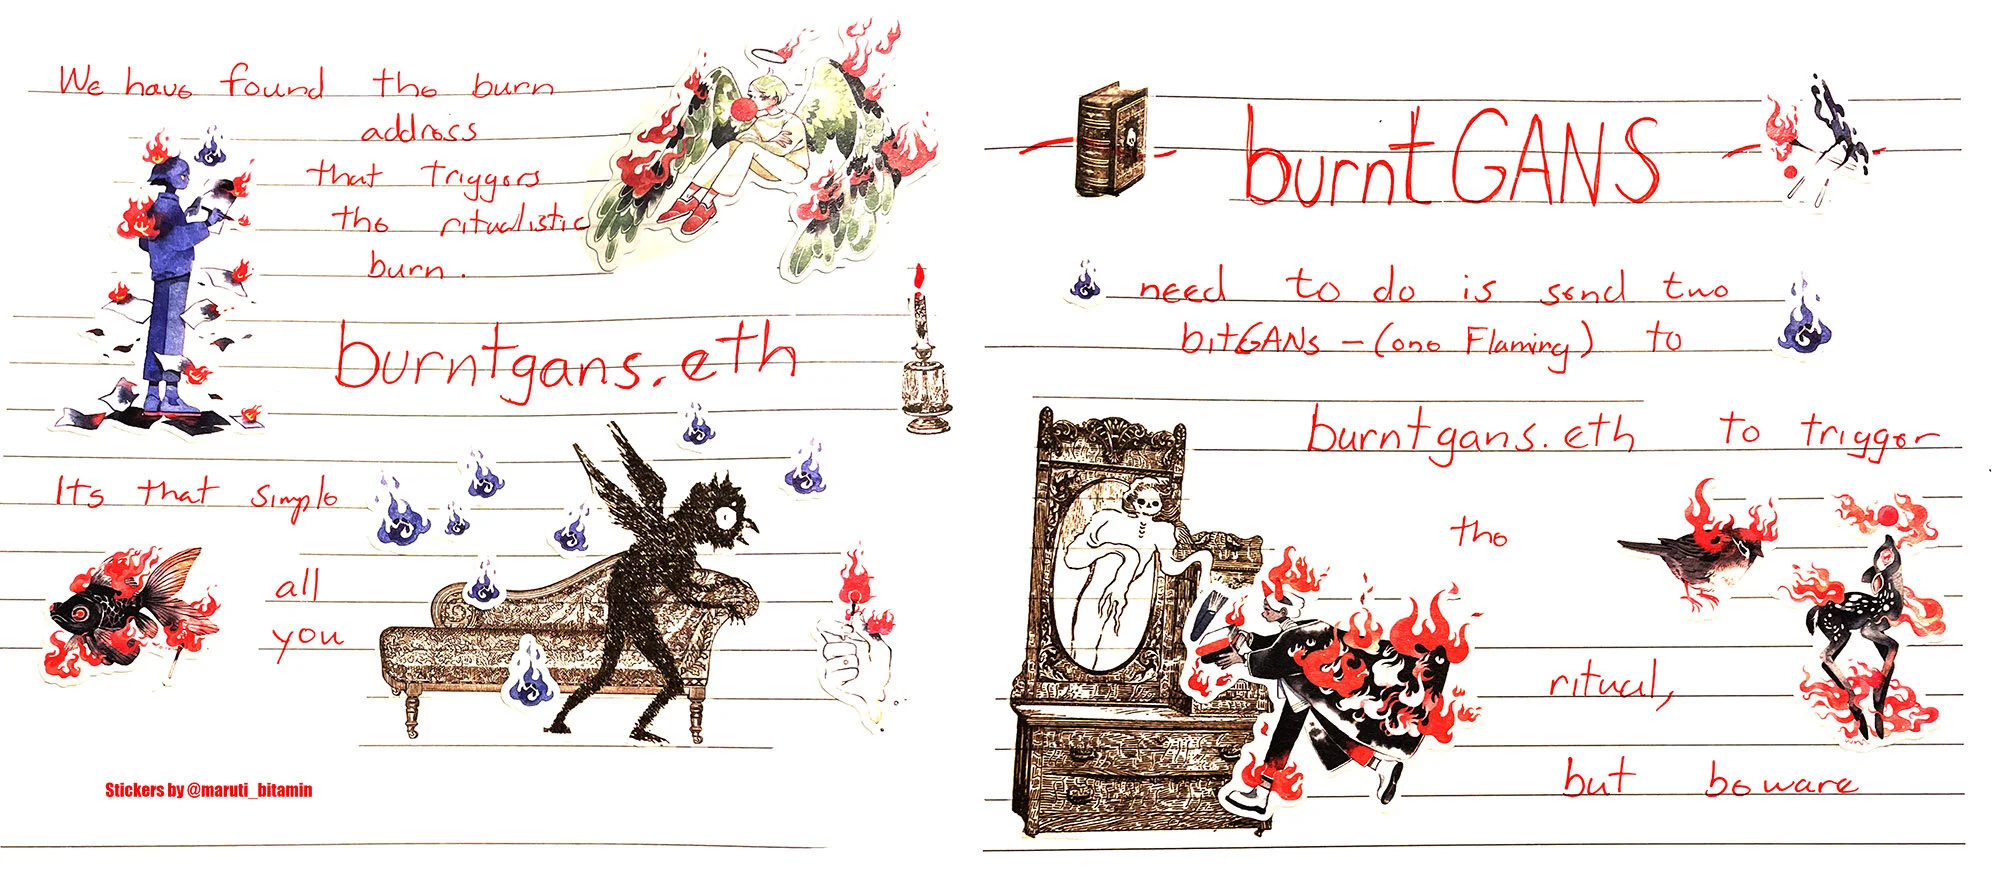 We have found the burn
address
that triggers
the ritualistic
burn.
burntgans.eth
Its that simple
all
you
Stickers by @maruti_bitamin
burntGANS
need to do is send two
bitGANs - (one Flaming) to
burntgans.eth to trigger
the
ritual,
but beware